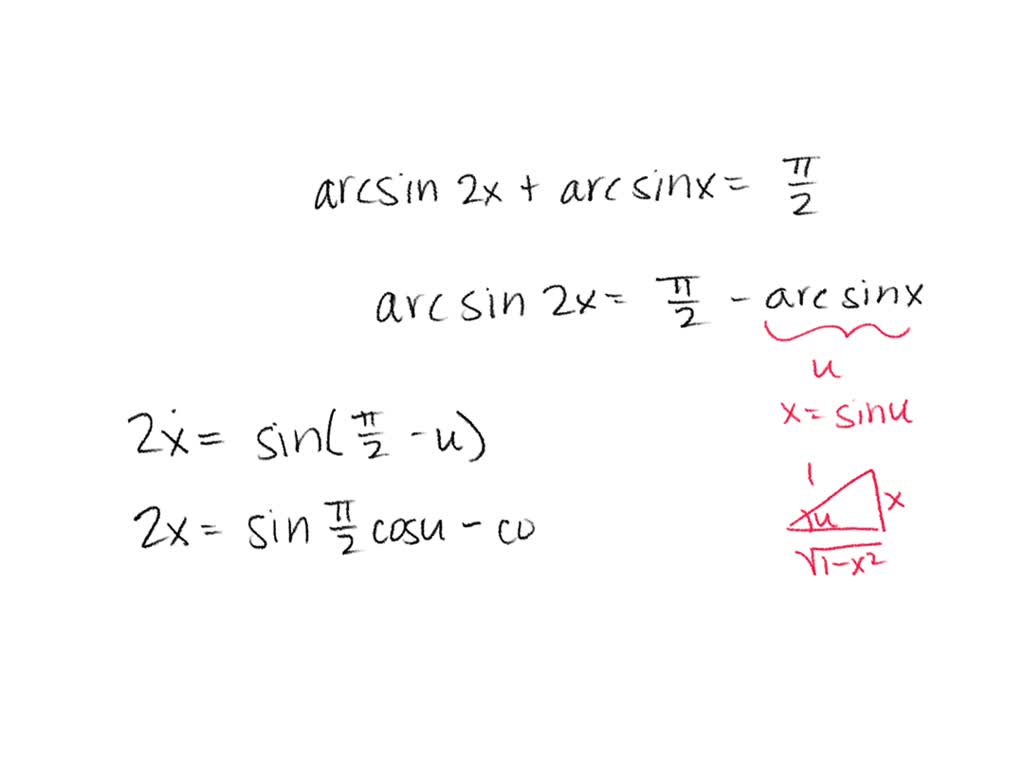 arcsin 2x + arcsinx = π/2
arcsin 2x = π/2 - arcsinx
u
x = sinu
2x = sin(π/2 - u)
1
x
u
2x = sin π/2 cosu - co
√1-x²